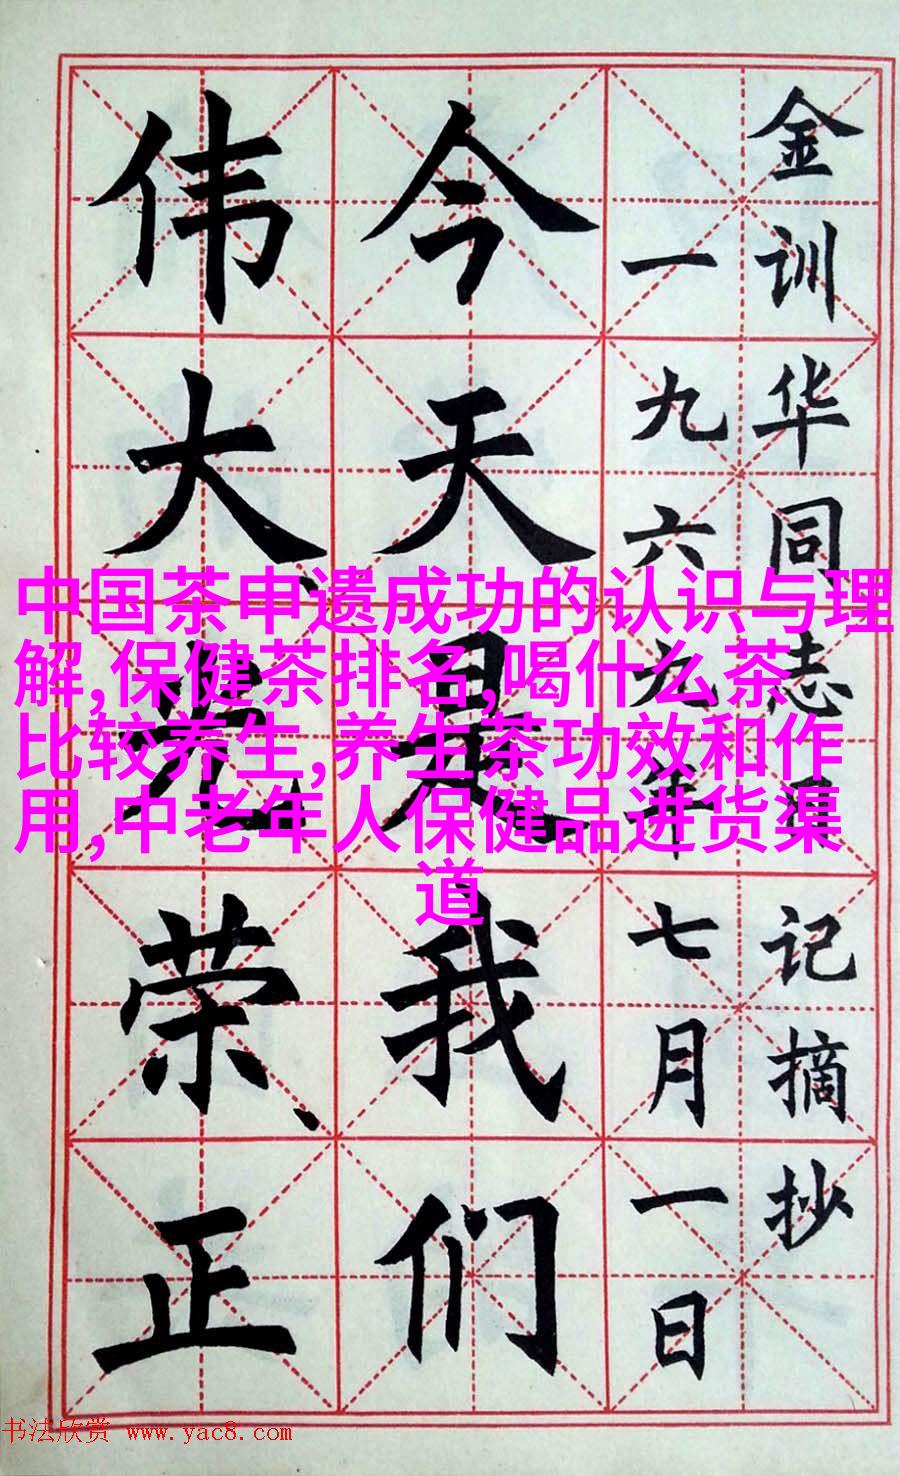 金训华同志日记摘抄
一九六九年七月一日
今天是我们
伟大、光荣、正
中国茶申遗成功的认识与理
解,保健茶排名,喝什么茶
比较养生,养生茶功效和作
用,中老年人保健品进货渠
道
书法欣赏 www.yac8.com